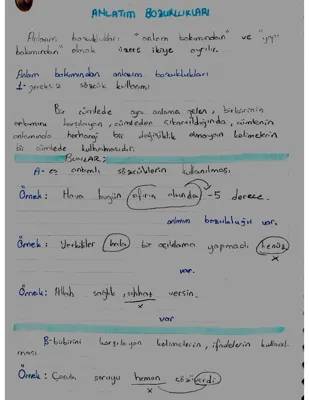 ANLATIM BOZUKLUKLARI
Anlatım bozuklukları "anlam bakımından" ve "yapı
bakımından" olmak üzere ikiye ayrılır.
Anlam bakımından anlatım bozuklukları
1- gereksiz sözcük kullanımı
Bir cümlede aynı anlama gelen, birbirinin
anlamını karşılayan, cümleden çıkarıldığında, cümlenin
anlamında herhangi bir değişiklik olmayan kelimelerin
bir cümlede kullanılmasıdır.
BUNLAR:
A- eş anlamlı sözcüklerin kullanılması
Örnek: Hava bugün sıfırın altında -5 derece.
anlatım bozukluğu var.
Örnek: Yetkililer hala bir açıklama yapmadı henüz
var.
Örnek: Allah sağlık, sıhhat versin.
var
B-birbirini karşılayan kelimelerin, ifadelerin kullanıl
ması
Örnek: Çocuk soruyu hemen çözüverdi